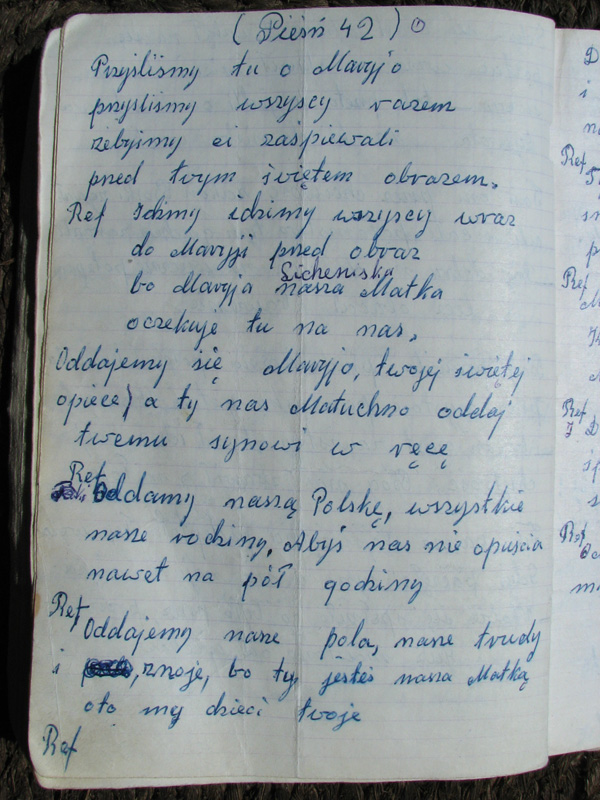 ( Pieśń 42 )
Przyśliśmy tu o Maryjo
przyśliśmy wszyscy razem
żebyjmy ci zaśpiewali
przed twym świętem obrazem.
Ref Idźmy idźimy wszyscy wraz
do Maryji przed obraz
Licheniska
bo Maryja nasza Matka
oczekuje tu na nas.
Oddajemy się Maryjo, twojej świętej
opiece) a ty nas Matuchno oddaj
twemu synowi w ręcę
Ref
Oddamy naszą Polskę, wszystkie
nasze rodziny. Abyś nas nie opuścia
nawet na pół godziny
Ref
Oddajemy nasze pola, nasze trudy
i znoje, bo ty jesteś nasza Matką
oto my dzieci twoje
Ref
D
i
n
Ref
s
p
Ref
M
Ref
I D
s
Ref
m